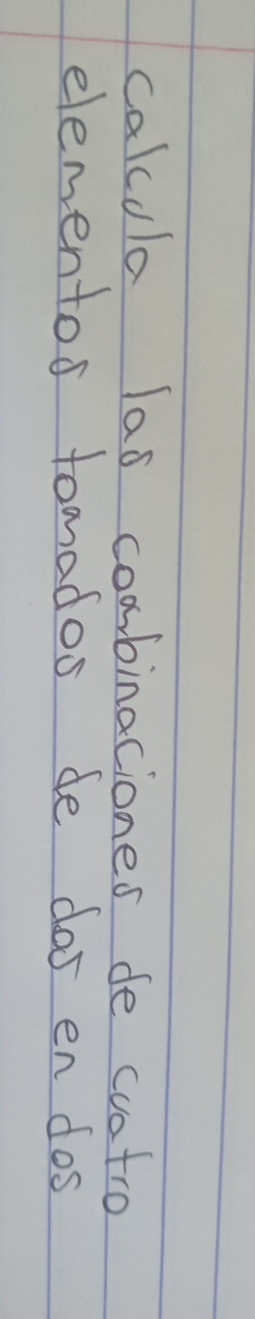 calcula las combinaciones de cuatro
elementos tomados de dos en dos